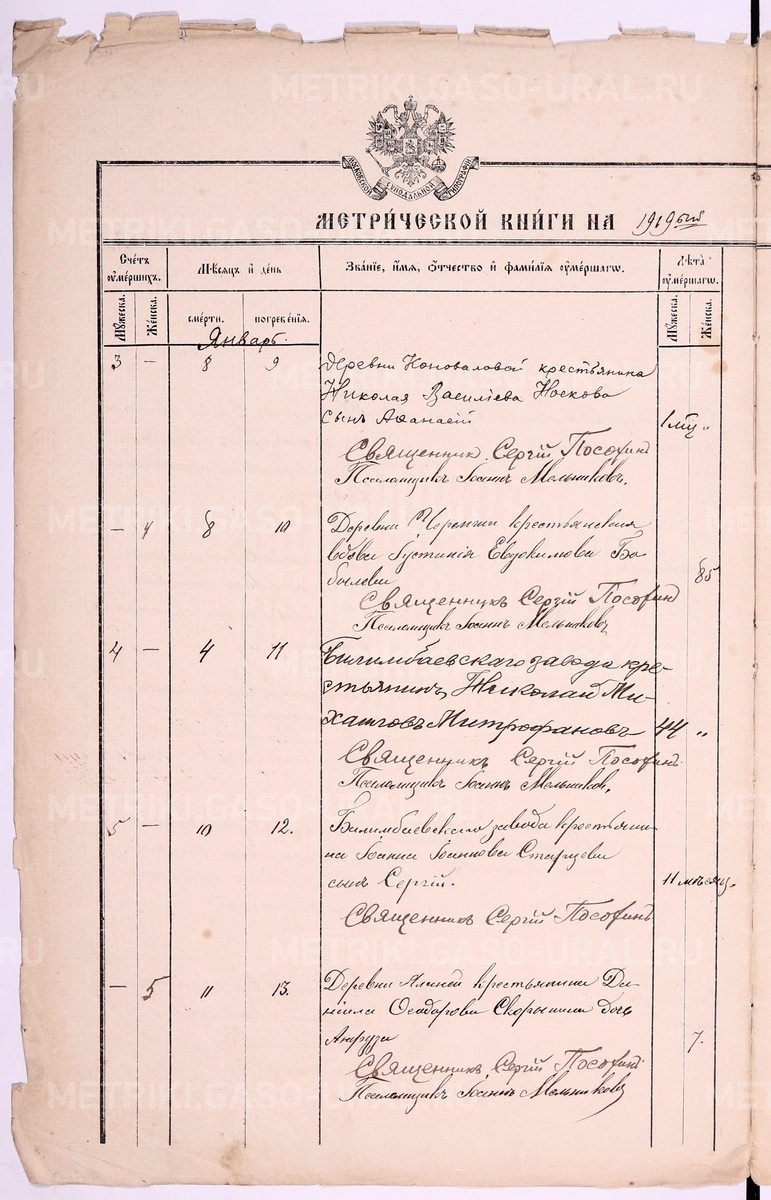 METRIKI.GASO-URAL.RU
МОСКОВСКОЙ СѴНОДАЛЬНОЙ ТИПОГРАФІИ
МЕТРИ́ЧЕСКОЙ КНИ́ГИ НА 1919 ый
Сче́тъ ᲂу҆ме́ршихъ.
Мѣ́сяцъ и҆ де́нь
Зва́нїе, и҆́мѧ, ѻ҆́тчество и҆ фами́лїѧ ᲂу҆ме́ршагѡ.
Лѣ́та ᲂу҆ме́ршагѡ.
Мꙋ́жеска. Же́нска.
сме́рти. погребе́нїѧ.
Мꙋ́жеска. Же́нска.
Январь.
3 — 8 9 Деревни Коноваловой крестьянина
Николая Василіева Носкова
сынъ Аѳанасій 1 мѣц „
Священник Сергій
Псаломщикъ Іоаннъ Мельниковъ.
— 4 8 10 Деревни крестьянская
вдова Іустинія Евдокимова Бо-
былева 85
Священникъ Сергій
Псаломщикъ Іоаннъ Мельниковъ
4 — 4 11 Билимбаевскаго завода кре-
стьянинъ Николай Ми-
хаиловъ Митрофановъ 44 „
Священникъ Сергій
Псаломщикъ Іоаннъ Мельников.
5 — 10 12. Билимбаевскаго завода крестьяни-
на Іоанна Іоаннова Старцева
сынъ Сергій. 11 мѣсяц.
Священникъ Сергій
— 5 11 13. Деревни крестьянина Да-
ніила Скорынина дочь
7.
Священникъ Сергій
Псаломщикъ Іоаннъ Мельниковъ